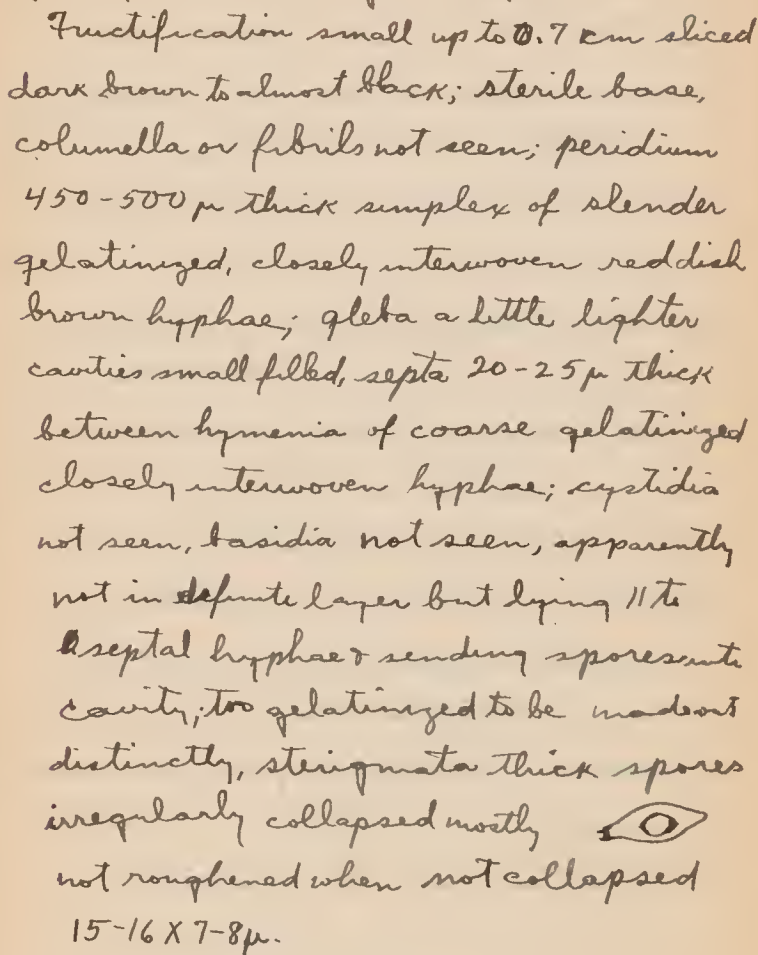 Fructification small up to 0.7 cm sliced
dark brown to almost black; sterile base,
columella or fibrils not seen; peridium
450-500 µ thick simplex of slender
gelatinized, closely interwoven reddish
brown hyphae; gleba a little lighter
cavities small filled, septa 20-25µ thick
between hymenia of coarse gelatinized
closely interwoven hyphae; cystidia
not seen, basidia not seen, apparently
not in definite layer but lying // to
septal hyphae & sending spores into
cavity; too gelatinized to be made out
distinctly, sterigmata thick spores
irregularly collapsed mostly
not roughened when not collapsed
15-16 X 7-8µ.